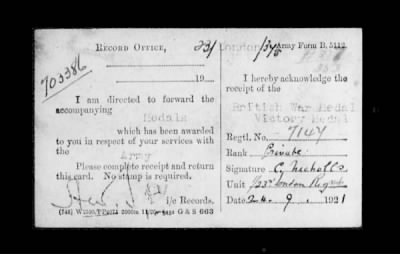 Record Office, 23/London/1345 Army Form B. 5112.
703386
19
I am directed to forward the
accompanying
Medals
which has been awarded
to you in respect of your services with
the Army
Please complete receipt and return
this card. No stamp is required.
i/c Records.
G & S 663
I hereby acknowledge the
receipt of the
British War Medal
Victory Medal
Regtl. No. 7147
Rank Private
Signature C. Nicholls
Unit 1/23rd London Regt
Date 24. 9. 1921